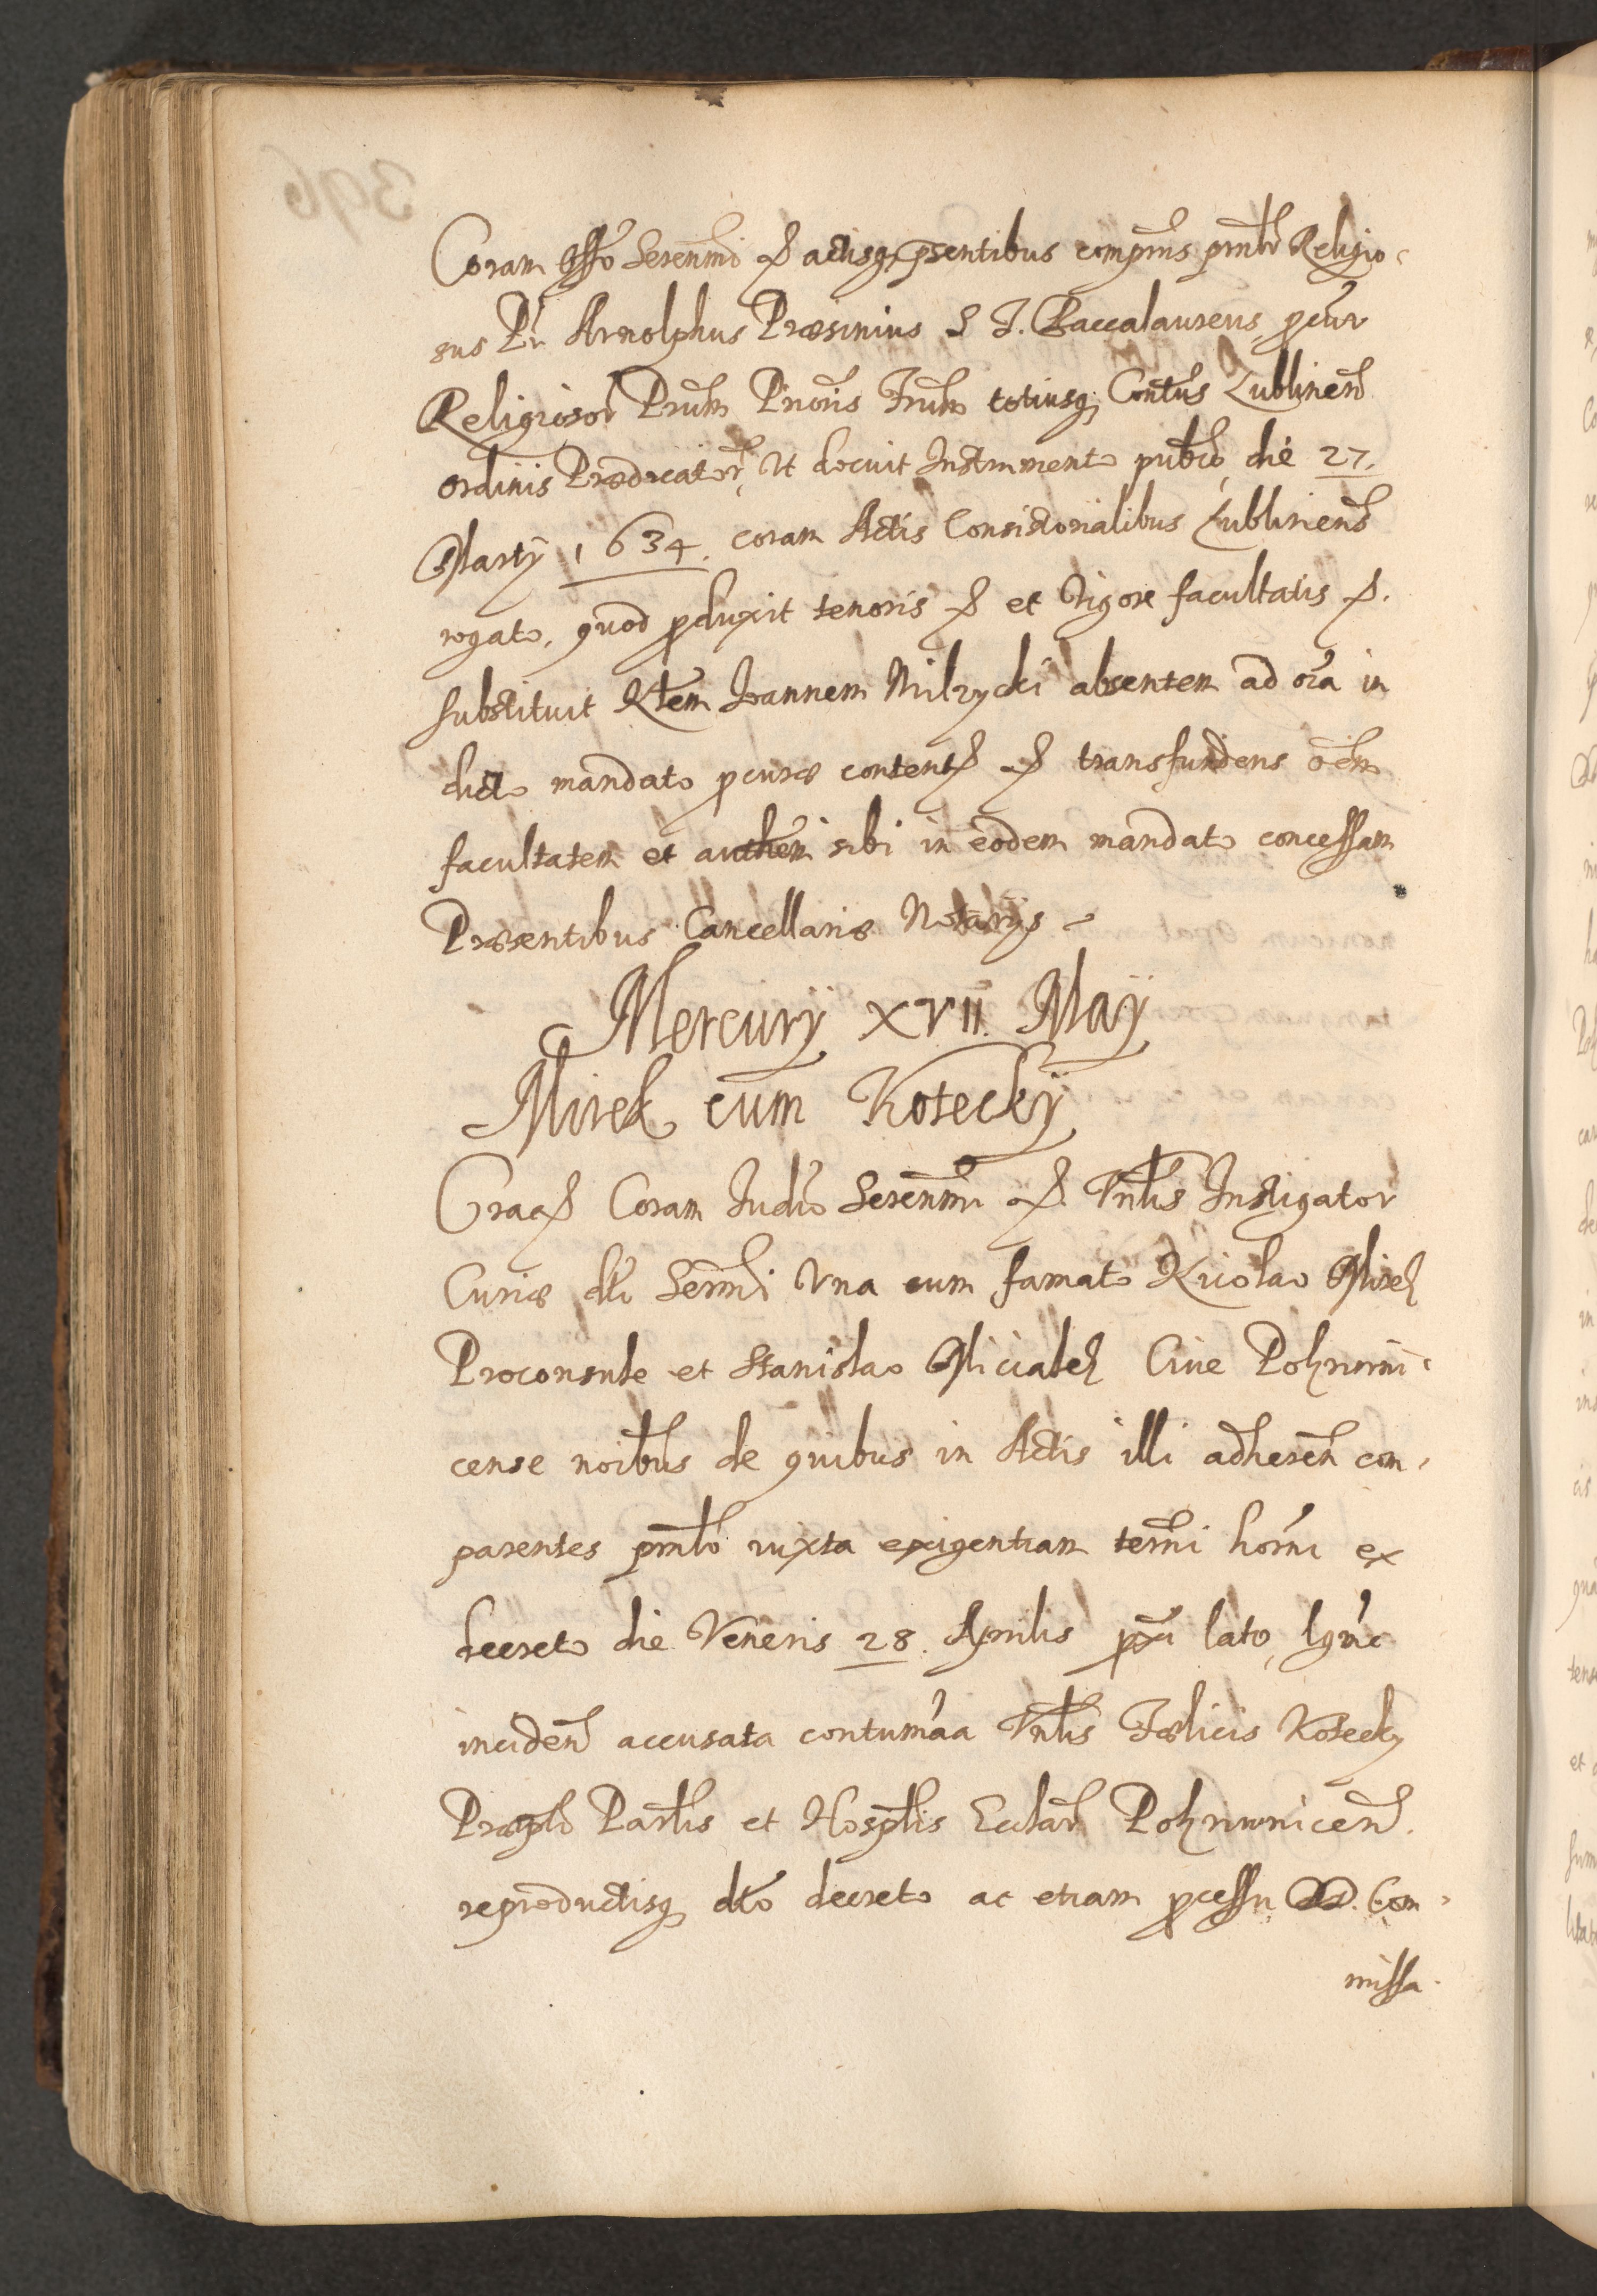 Coram Offo Serenmi & actisq, psentibus comprns prnlr Religio-
sus Pr Arnolphus Præsinius S T. Baccalaureus, pcur
Religiosor Prum Prioris Frum totiusq, Contus Lublinen
ordinis Prædicator, Vt docuit Instrumento publco, die 27.
Martÿ 1634. coram Actis Consistorialibus Lublinens
rogato, quod pduxit tenoris & et Vigore facultatis &.
substituit Ioannem Milzycki absentem ad oīa in
dicto mandato pcuræ content & transfundens oēm
facultatem et authem sibi in eodem mandato concessam
Præsentibus Cancellariæ Notarÿs
Mercurÿ XVII. Maÿ
Mirek cum Koteckÿ
Grac Coram Iudio Serenmi & Vnlis Instigator
Curiæ dti Serenmi Vna cum famato Nicolao Mirek
Proconsule et Stanislao Micialek Ciue Pobrwni-
cense noibus de quibus in Actis illi adheren com-
parentes prnlr iuxta exigentiam termi horni ex
decreto die Veneris 28. Aprilis pxi lato,
inciden accusata contumãa Vnlis Fælicis Kotecky
Præpti Parlis et Hosptlis Ecclar
reproductisq dto decreto ac etiam pcessu Com-
missa